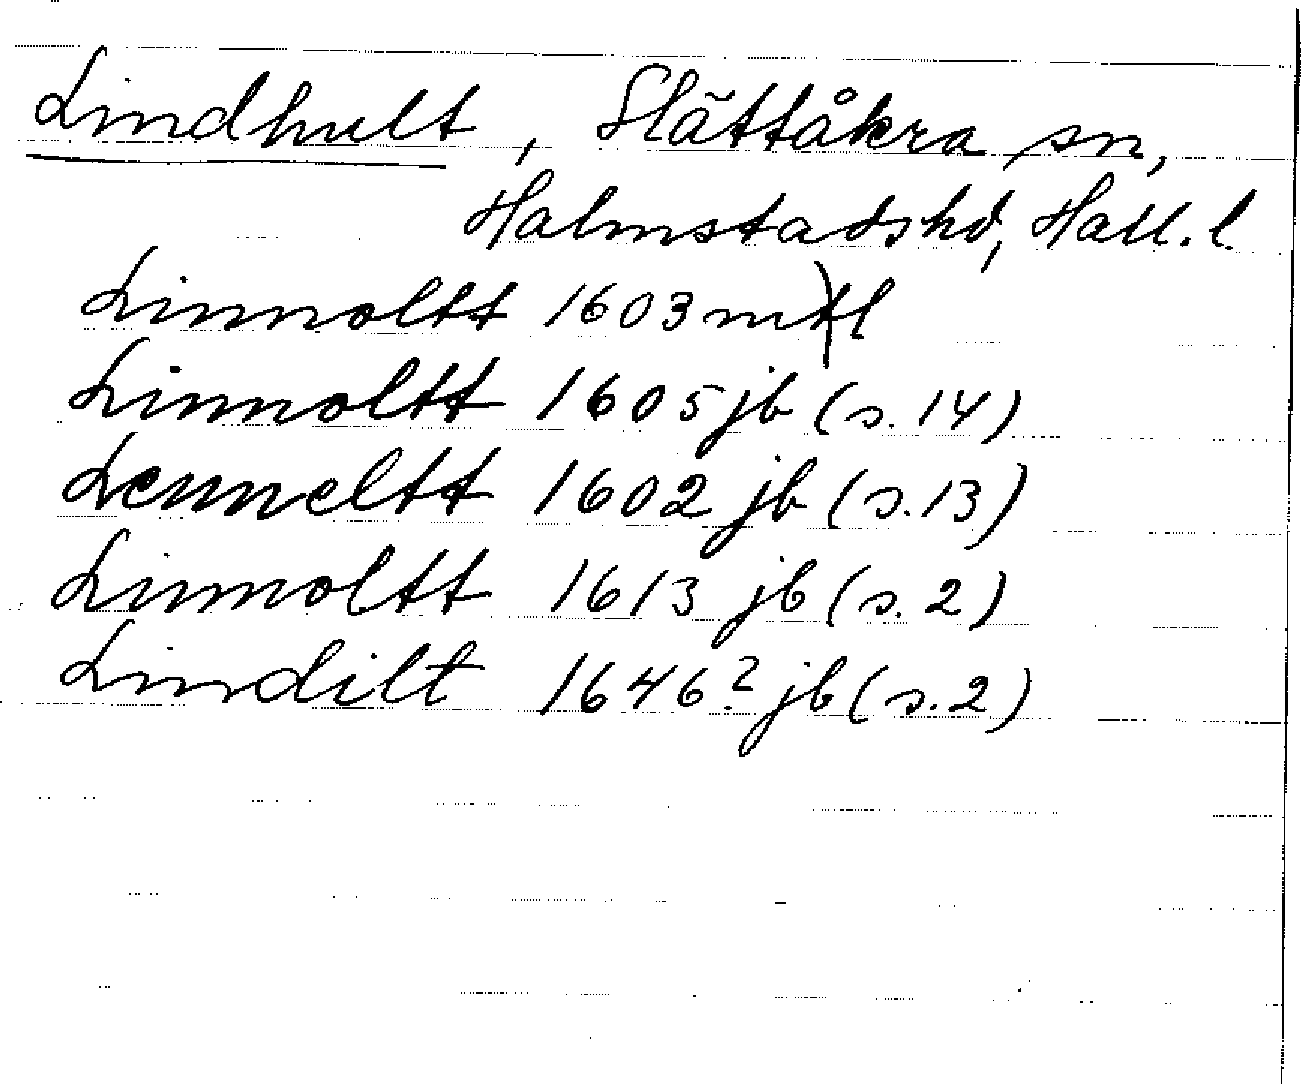 Lindhult, Slättåkra sn,
Halmstads hd, Hall. l
Linnoltt 1603 mtl
Linnoltt 1605 jb (s. 14)
Lenneltt 1602 jb (s. 13)
Linnoltt 1613 jb (s. 2)
Lindilt 1646? jb (s. 2)